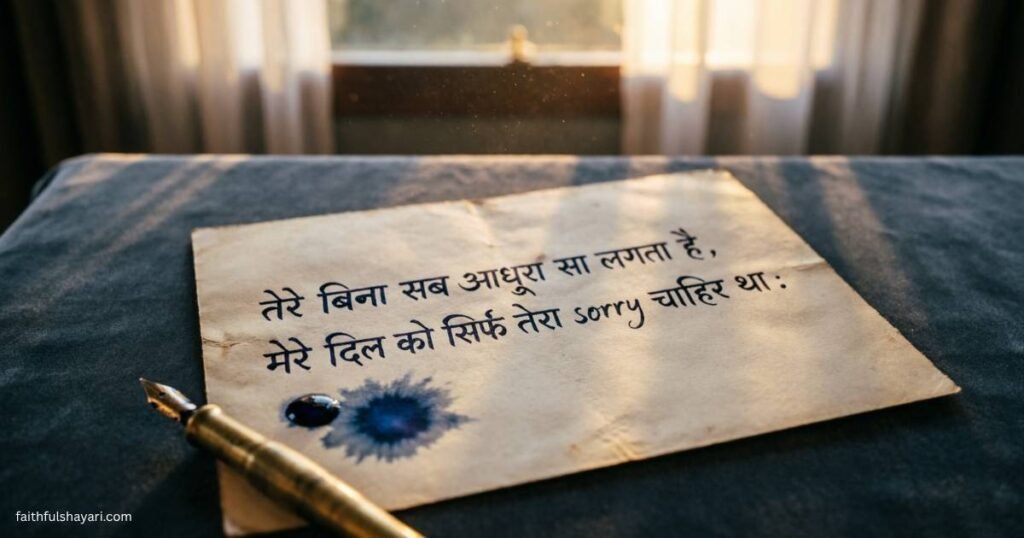 तेरे बिना सब आधूरा सा लगता है,
मेरे दिल को सिर्फ तेरा sorry चाहिर था :
faithfulshayari.com